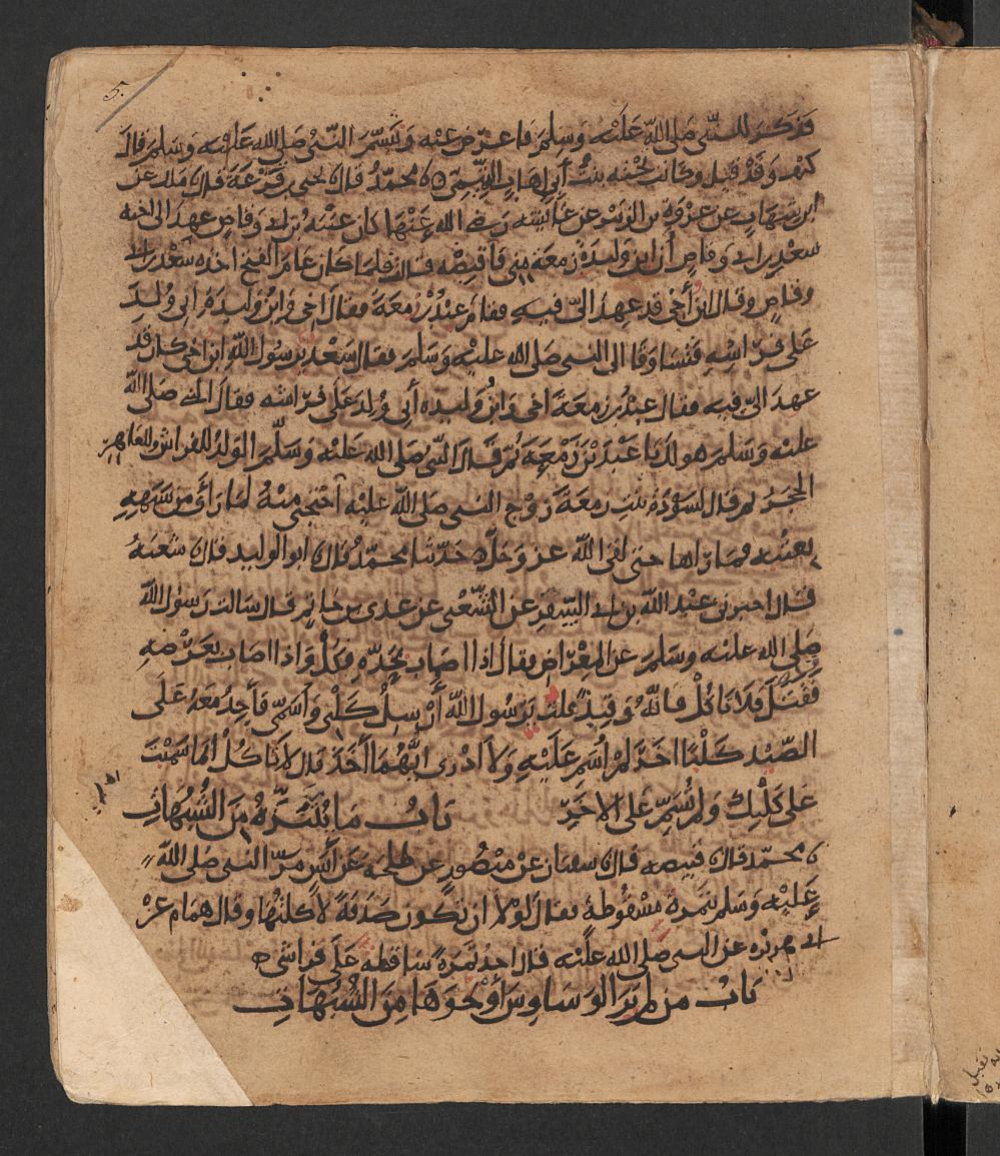 فذكر للنبي صلى الله عليه وسلم فاعرض عنه وتبسم النبي صلى الله عليه وسلم قال
كيف وقد قيل وكانت تحته بنت أبي إهاب التميمي ن محمد قال ن يحيى بن قزعة قال ن ملك عن
ابن شهاب عن عروة بن الزبير عن عائشة رضي الله عنها كان عتبة بن ابي وقاص عهد الى اخيه
سعد بن ابي وقاص أن ابن وليدة زمعة مني فاقبضه قالت فلما كان عام الفتح اخذه سعد بن ابي
وقاص وقال ابن أخي قد عهد الي فيه فقام عبد بن زمعة فقال اخي وابن وليدة ابي ولد
على فراشه فتساوقا الى النبي صلى الله عليه وسلم فقال سعد يرسول الله ابن اخي كان قد
عهد الي فيه فقال عبد بن زمعة اخي وابن وليدة أبي ولد على فراشه فقال النبي صلى الله
عليه وسلم هو لك يا عبد بن زمعة ثم قال النبي صلى الله عليه وسلم الولد للفراش وللعاهر
الحجر ثم قال لسودة بنت زمعة زوج النبي صلى الله عليه احتجبي منه لما رأى من شبهه
بعتبة فما راها حتى لقي الله عز وجل حدثنا محمد قال ن ابو الوليد قال ن شعبة
قال اخبرني عبد الله بن ابي السفر عن الشعبي عن عدي بن حاتم قال سالت رسول الله
صلى الله عليه وسلم عن المعراض فقال اذا اصاب بحده فكل واذا اصاب بعرضه
فقتل فلا تاكل فانه وقيذ قلت يرسول الله أرسل كلبي وأسمي فأجد معه على
الصيد كلبا اخر لم اسم عليه ولا ادري ايهما أخذ قال لا تاكل انما سميت
على كلبك ولم تسم على الاخر باب ما يتنزه من الشبهات
ن محمد قال ن قبيصة قال ن سفيان عن منصور عن طلحة عن أنس مر النبي صلى الله
عليه وسلم بتمرة مسقوطة فقال لولا ان تكون صدقة لاكلتها وقال همام عن
ابي هريرة عن النبي صلى الله عليه قال اجد تمرة ساقطة على فراشي
باب من لم ير الوساوس أو نحوها من الشبهات